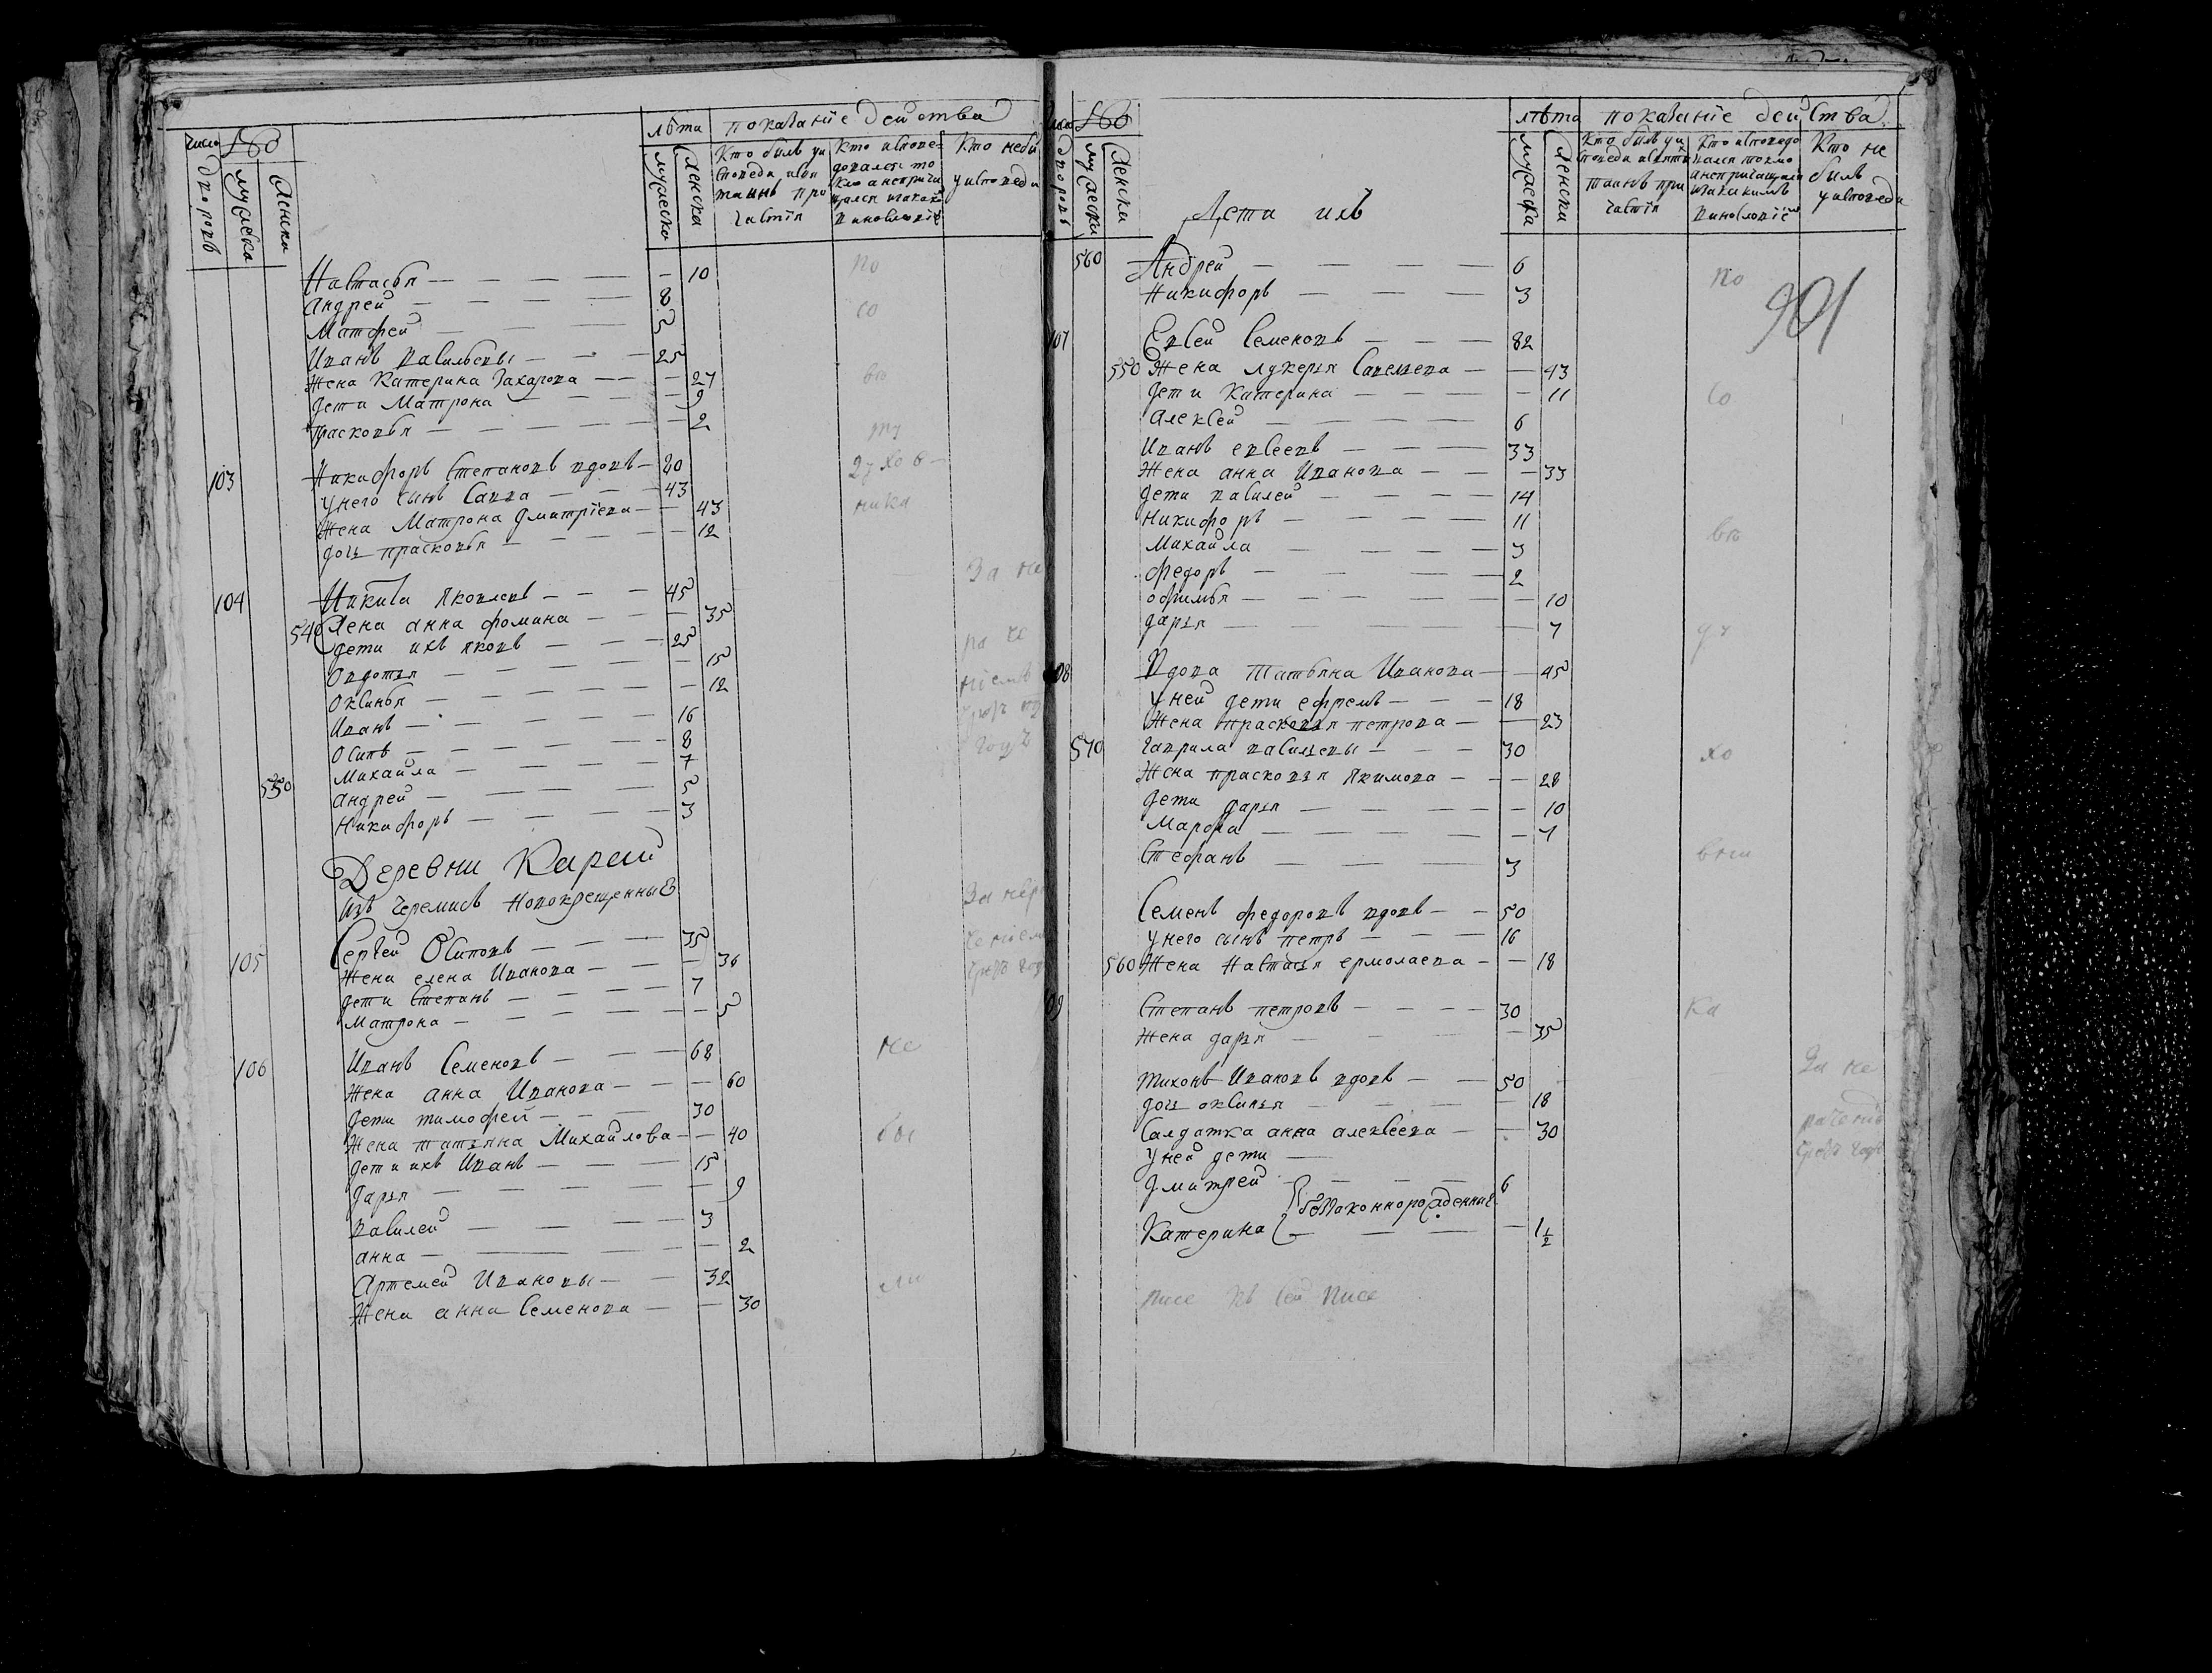 число дворовъ
мужеска
женска
лѣта
показаніе действа
мужеска
женска
Кто былъ у исповеди и святыхъ таинъ причастія
Кто исповедовался токмо а не причащался и за какимъ виновлопіемъ
Кто не былъ у исповеди
Настасья — — — — — 10 по
Андрей — — — — 8
Матфей — — — 3 со
Иванъ Васильевы — — — 25
Жена Катерина Захарова — — — 27 вѣ
Дети Матрона — — — — 9
Прасковья — — — — — 2 ту
103 Никифоръ Степановъ вдовъ — 20 духов
У него сынъ Савва — — — 43 ника
Жена Матрона Дмитріева — — 43
Дочь Прасковья — — — — 12
За не
104 Никита Яковлевъ — — — 45
540 Жена Анна Фомина — — — 35
Дети ихъ Яковъ — — — 25 ра че
Овдотья — — — — — 15
Оксинья — — — — — 12 ніемъ
Иванъ — — — — 16
Осипъ — — — — 8
550 Михайла — — — — 7
Андрей — — — — 5
Никифоръ — — — — 3
Деревни Караи
изъ черемисъ новокрещенныя
За нера
105 Сергей Осиповъ — — — 35 ченіем
Жена Елена Иванова — — — 36
Дети Степанъ — — — — 7
Матрона — — — — — 5
106 Иванъ Семеновъ — — — 68 не
Жена Анна Иванова — — — 60
Дети Тимофей — — — 30
Жена Татьяна Михайлова — — 40 бы
Дети ихъ Иванъ — — — 15
Дарья — — — — — 9
Василей — — — — 3
Анна — — — — — 2
Артемей Ивановы — — 32 ли
Жена Анна Семенова — — 30
число дворовъ
мужеска
женска
Дети ихъ
лѣта
показаніе действа
мужеска
женска
Кто былъ у исповеди и святыхъ таинъ причастія
Кто исповедовался токмо а не причащался и за какимъ
Кто не былъ у исповеди
560 Андрей — — — — 6 по
Никифоръ — — — 3
901
107 Евсей Семеновъ — — — 82
550 Жена Лукерья Савельева — — 43
Дети Катерина — — — — 11 со
Алексей — — — — 6
Иванъ Евсеевъ — — — 33
Жена Анна Иванова — — — 33
Дети Василей — — — — 14
Никифоръ — — — — 11
Михайла — — — — 3 вѣ
Федоръ — — — — 2
Офимья — — — — — 10
Дарья — — — — — 7 ду
108 Вдова Татьяна Иванова — — 45
У ней дети Ефремъ — — — 18
Жена Прасковья Петрова — — 23
570 Гаврила Васильевы — — — 30 хо
Жена Прасковья Якимова — — — 28
Дети Дарья — — — — — 10
Марфа — — — — — 7
Стефанъ — — — — 3
Семенъ Федоровъ вдовъ — — 50
У него сынъ Петръ — — — 16
560 Жена Настасья Ермолаева — — 18
109 Степанъ Петровъ — — — — 30 ка
Жена Дарья — — — — 35
Тихонъ Ивановъ вдовъ — — 50 За не
Дочь Оксинья — — — — 18
Салдатка Анна Алексеева — — 30 раченіе
У ней дети —
Дмитрей — — — 6
беззаконнорожденные
Катерина — — — — 1½